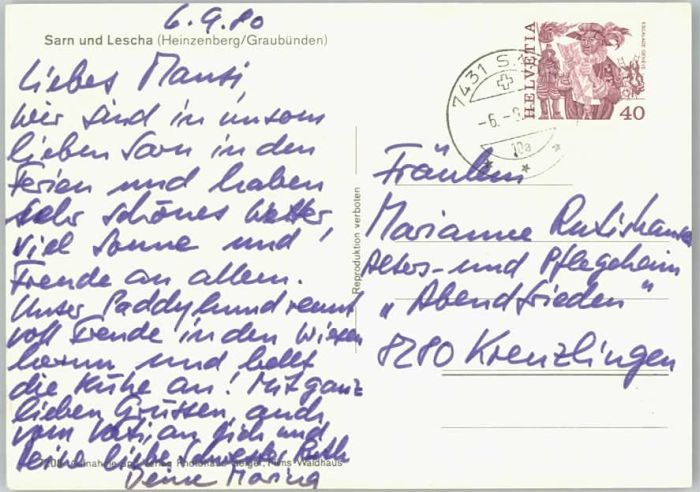 6.9.80
Sarn und Lescha (Heinzenberg/Graubünden)
Liebes Mausi,
Wir sind in unserm
lieben Sarn in den
Ferien und haben
sehr schönes Wetter,
viel Sonne und
Freude an allem.
Unser Paddyhund rennt
voll Freude in den Wiesen
herum und bellt
die Kühe an! Mit ganz
lieben Grüssen, auch
vom Vati, an Dich und
Deine liebe Schwester Ruth
Deine Marina
Reproduktion verboten
7431 S
-6.-9
10a
HELVETIA
ESCALADE GENÈVE
40
Fräulein
Marianne Rutishauser
Alters- und Pflegeheim
„Abendfrieden"
8280 Kreuzlingen
Flims Waldhaus